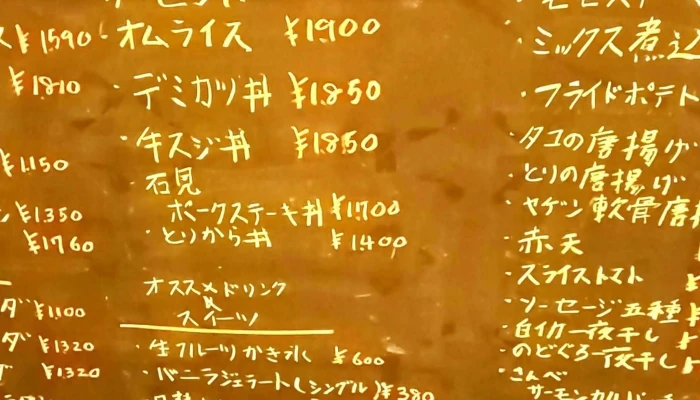 ¥1590
¥1810
¥1150
¥1350
¥1760
¥1100
¥1320
¥1320
・オムライス ¥1900
・デミカツ丼 ¥1850
・牛スジ丼 ¥1850
・石見
ポークステーキ丼 ¥1700
・とりから丼 ¥1400
オススメドリンク
&
スイーツ
・生フルーツかき氷 ¥600
・バニラジェラート(シングル) ¥380
・ミックス煮込
・フライドポテト
・タコの唐揚げ
・とりの唐揚げ
・ヤゲン軟骨唐揚
・赤天
・スライストマト
・ソーセージ五種 ¥
・白イカ一夜干し
・のどぐろ一夜干し ¥
・さんべ